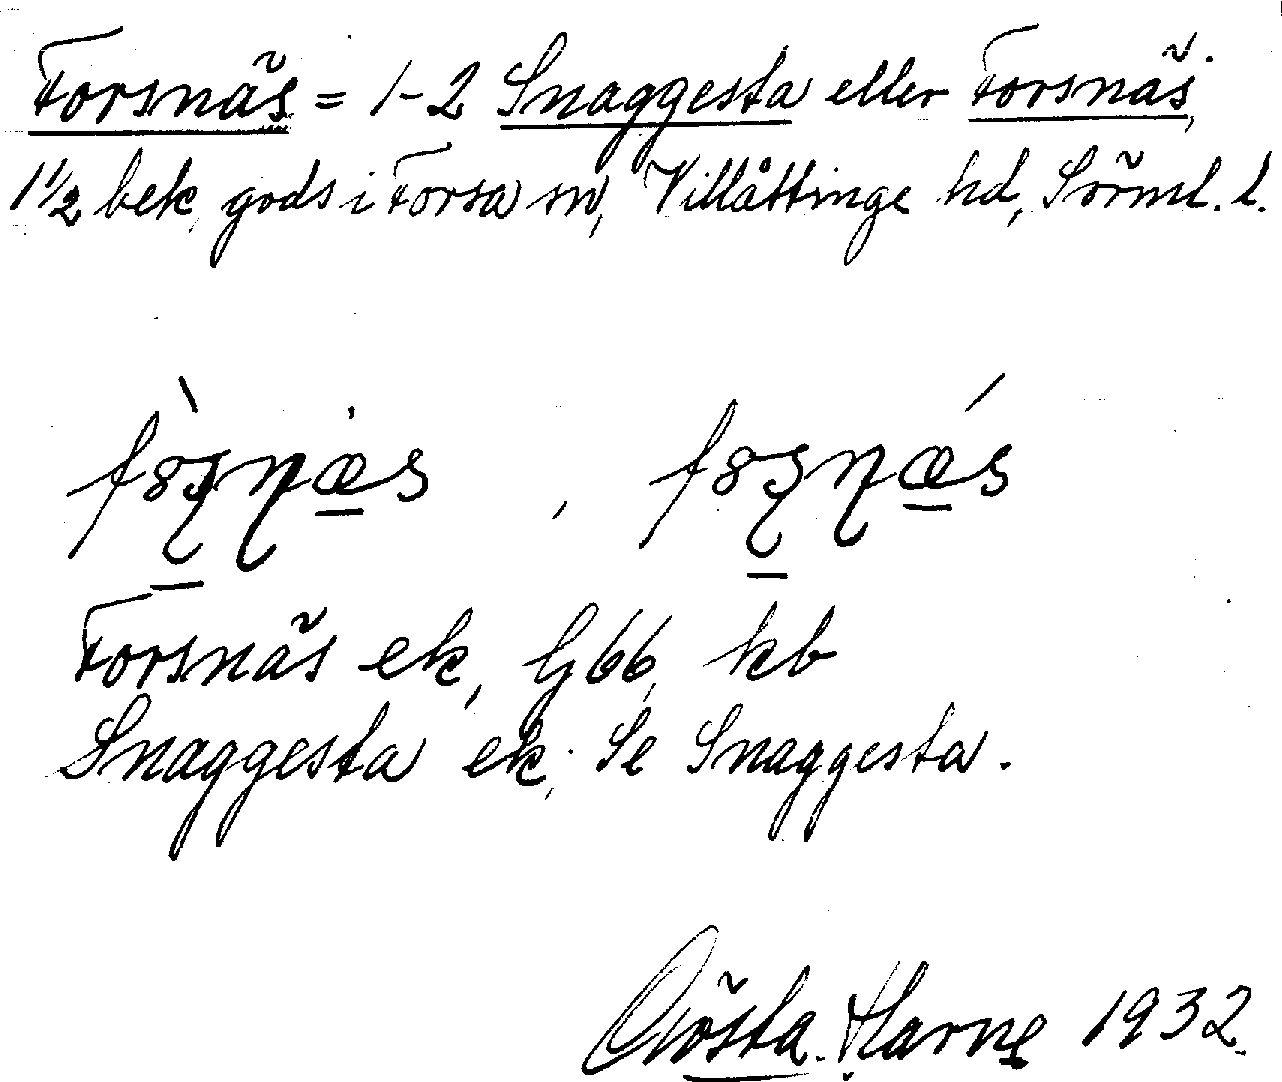 Forsnäs = 1-2 Snaggesta eller Forsnäs,
1½ bek, gods i Forsa sn, Villåttinge hd, Sörml. l.
Forsnäs ek, G66, kb
Snaggesta ek; Se Snaggesta.
Gösta Harne 1932.